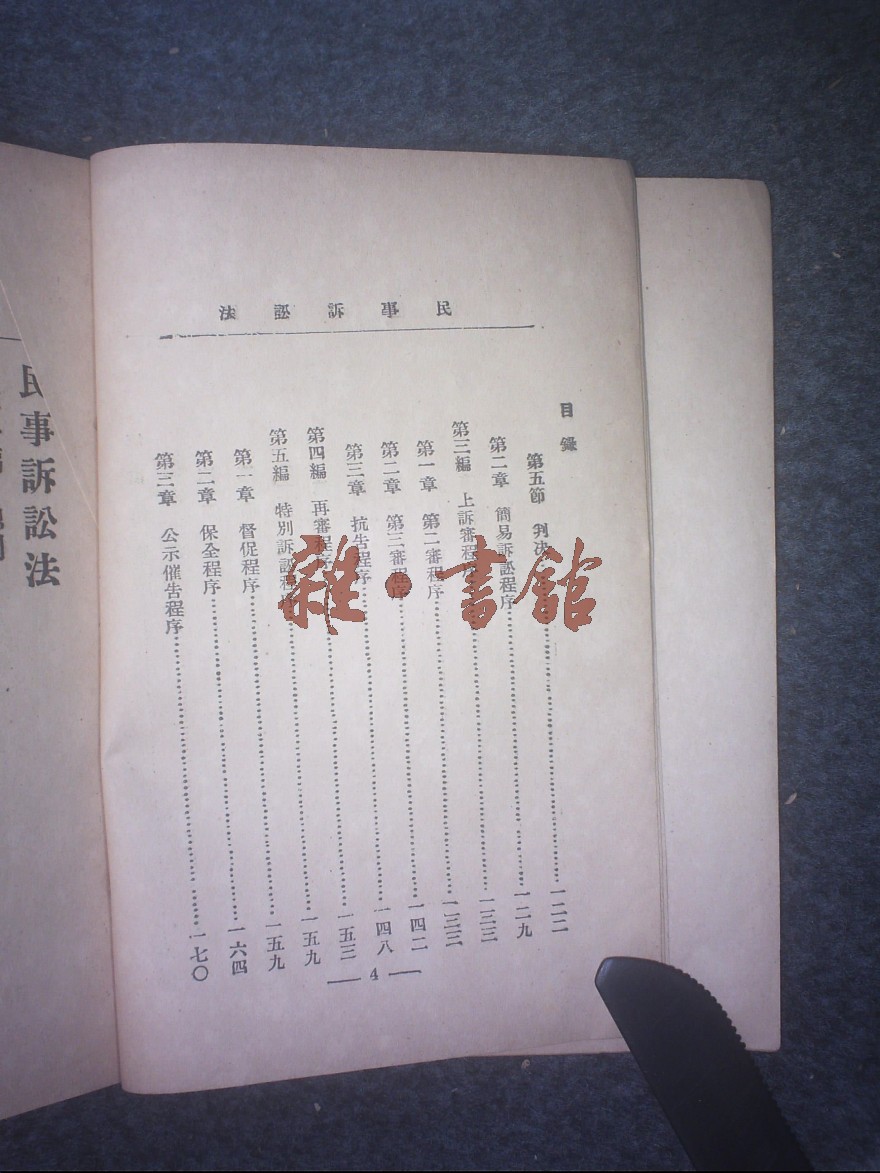 民事訴訟法
目錄
第五節 判決……一二二
第二章 簡易訴訟程序……一二九
第三編 上訴審程序……一三三
第一章 第二審程序……一三三
第二章 第三審程序……一四二
第三章 抗告程序……一四八
第四編 再審程序……一五三
第五編 特別訴訟程序……一五九
第一章 督促程序……一五九
第二章 保全程序……一六四
第三章 公示催告程序……一七〇
— 4 —
民事訴訟法
雜·書館